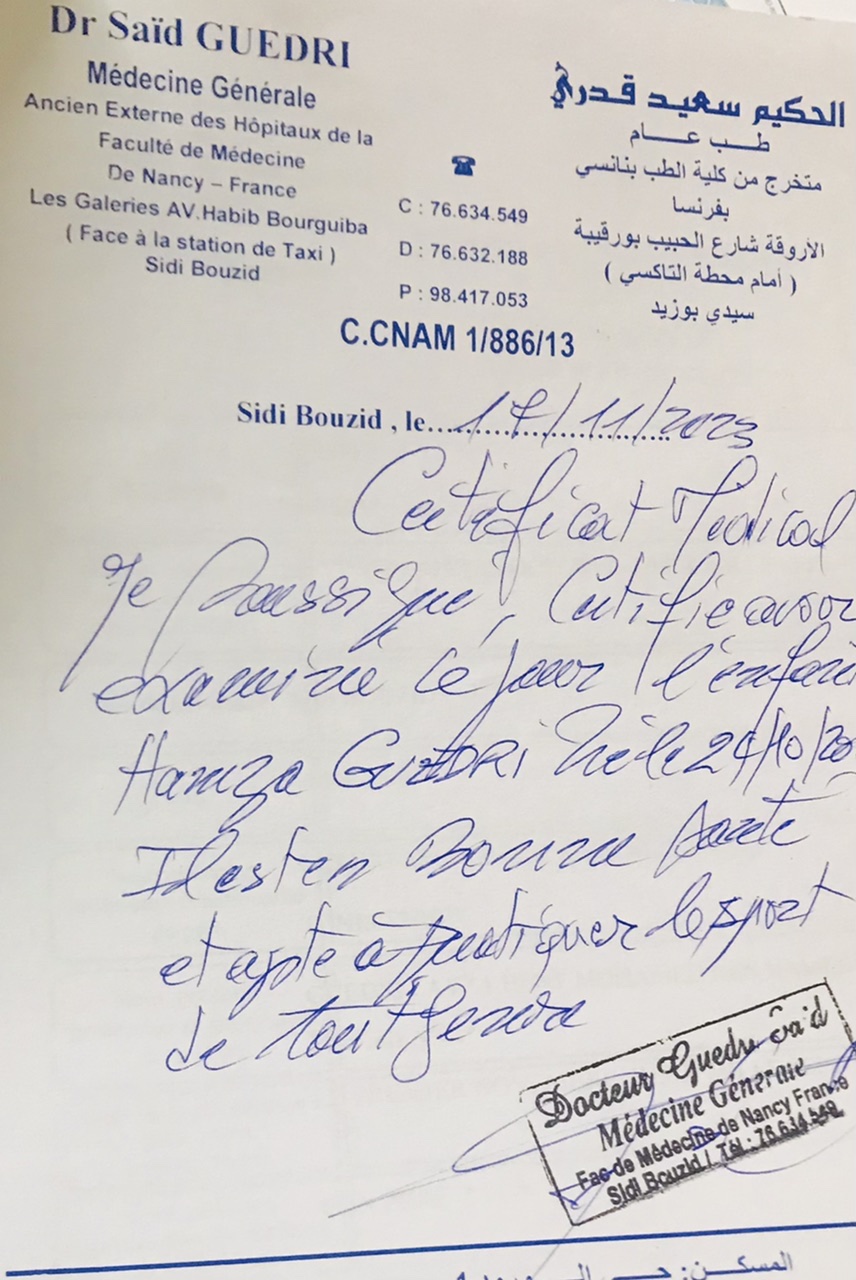 Dr Saïd GUEDRI
Médecine Générale
Ancien Externe des Hôpitaux de la
Faculté de Médecine
De Nancy – France
Les Galeries AV.Habib Bourguiba
( Face à la station de Taxi )
Sidi Bouzid
☎
C : 76.634.549
D : 76.632.188
P : 98.417.053
الحكيم سعيد قدري
طب عام
متخرج من كلية الطب بنانسي
بفرنسا
الأروقة شارع الحبيب بورقيبة
( أمام محطة التاكسي )
سيدي بوزيد
C.CNAM 1/886/13
Sidi Bouzid , le 17/11/2023
Certificat Medical
Je soussigné, Certifie avoir
examiné ce jour l'enfant
Hamza GUEDRI Né le /10/20
Il est en Bonne santé
et apte à pratiquer le sport
de tout genre
Docteur Guedri Saïd
Médecine Générale
Fac de Médecine de Nancy France
Sidi Bouzid / Tél : 76.634.549
المسكن: حي